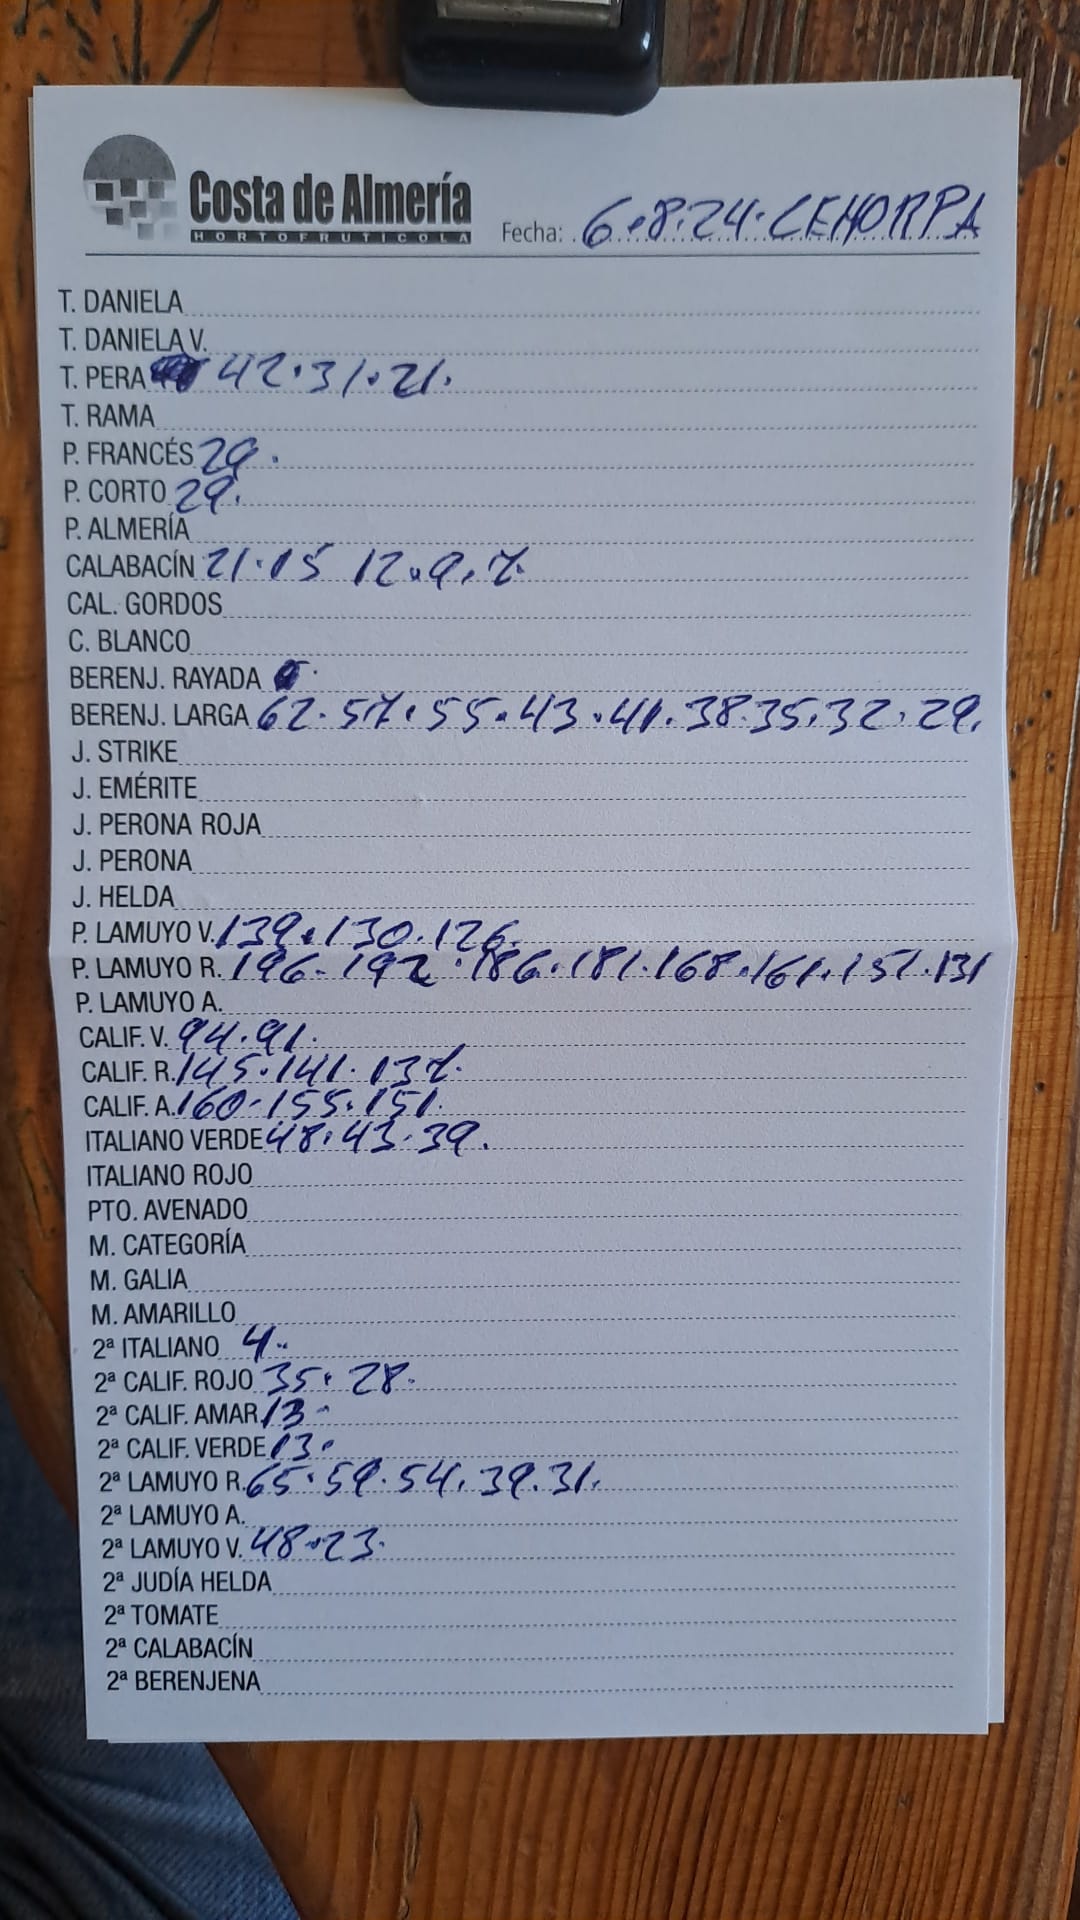 Costa de Almería
HORTOFRUTICOLA
Fecha: 6.8.24. CEHORPA
T. DANIELA
T. DANIELA V.
T. PERA 42.31.21.
T. RAMA
P. FRANCÉS 29.
P. CORTO 29.
P. ALMERÍA
CALABACÍN 21.15 12.9.7.
CAL. GORDOS
C. BLANCO
BERENJ. RAYADA
BERENJ. LARGA 62.57.55.43.41.38.35.32.29.
J. STRIKE
J. EMÉRITE
J. PERONA ROJA
J. PERONA
J. HELDA
P. LAMUYO V. 139.130.126.
P. LAMUYO R. 196.192.186.181.168.161.151.131
P. LAMUYO A.
CALIF. V. 94.91.
CALIF. R. 145.141.137.
CALIF. A. 160.155.151.
ITALIANO VERDE 48.43.39.
ITALIANO ROJO
PTO. AVENADO
M. CATEGORÍA
M. GALIA
M. AMARILLO
2ª ITALIANO 4.
2ª CALIF. ROJO 35.28.
2ª CALIF. AMAR 13.
2ª CALIF. VERDE 13.
2ª LAMUYO R. 65.59.54.39.31.
2ª LAMUYO A.
2ª LAMUYO V. 48.23.
2ª JUDÍA HELDA
2ª TOMATE
2ª CALABACÍN
2ª BERENJENA